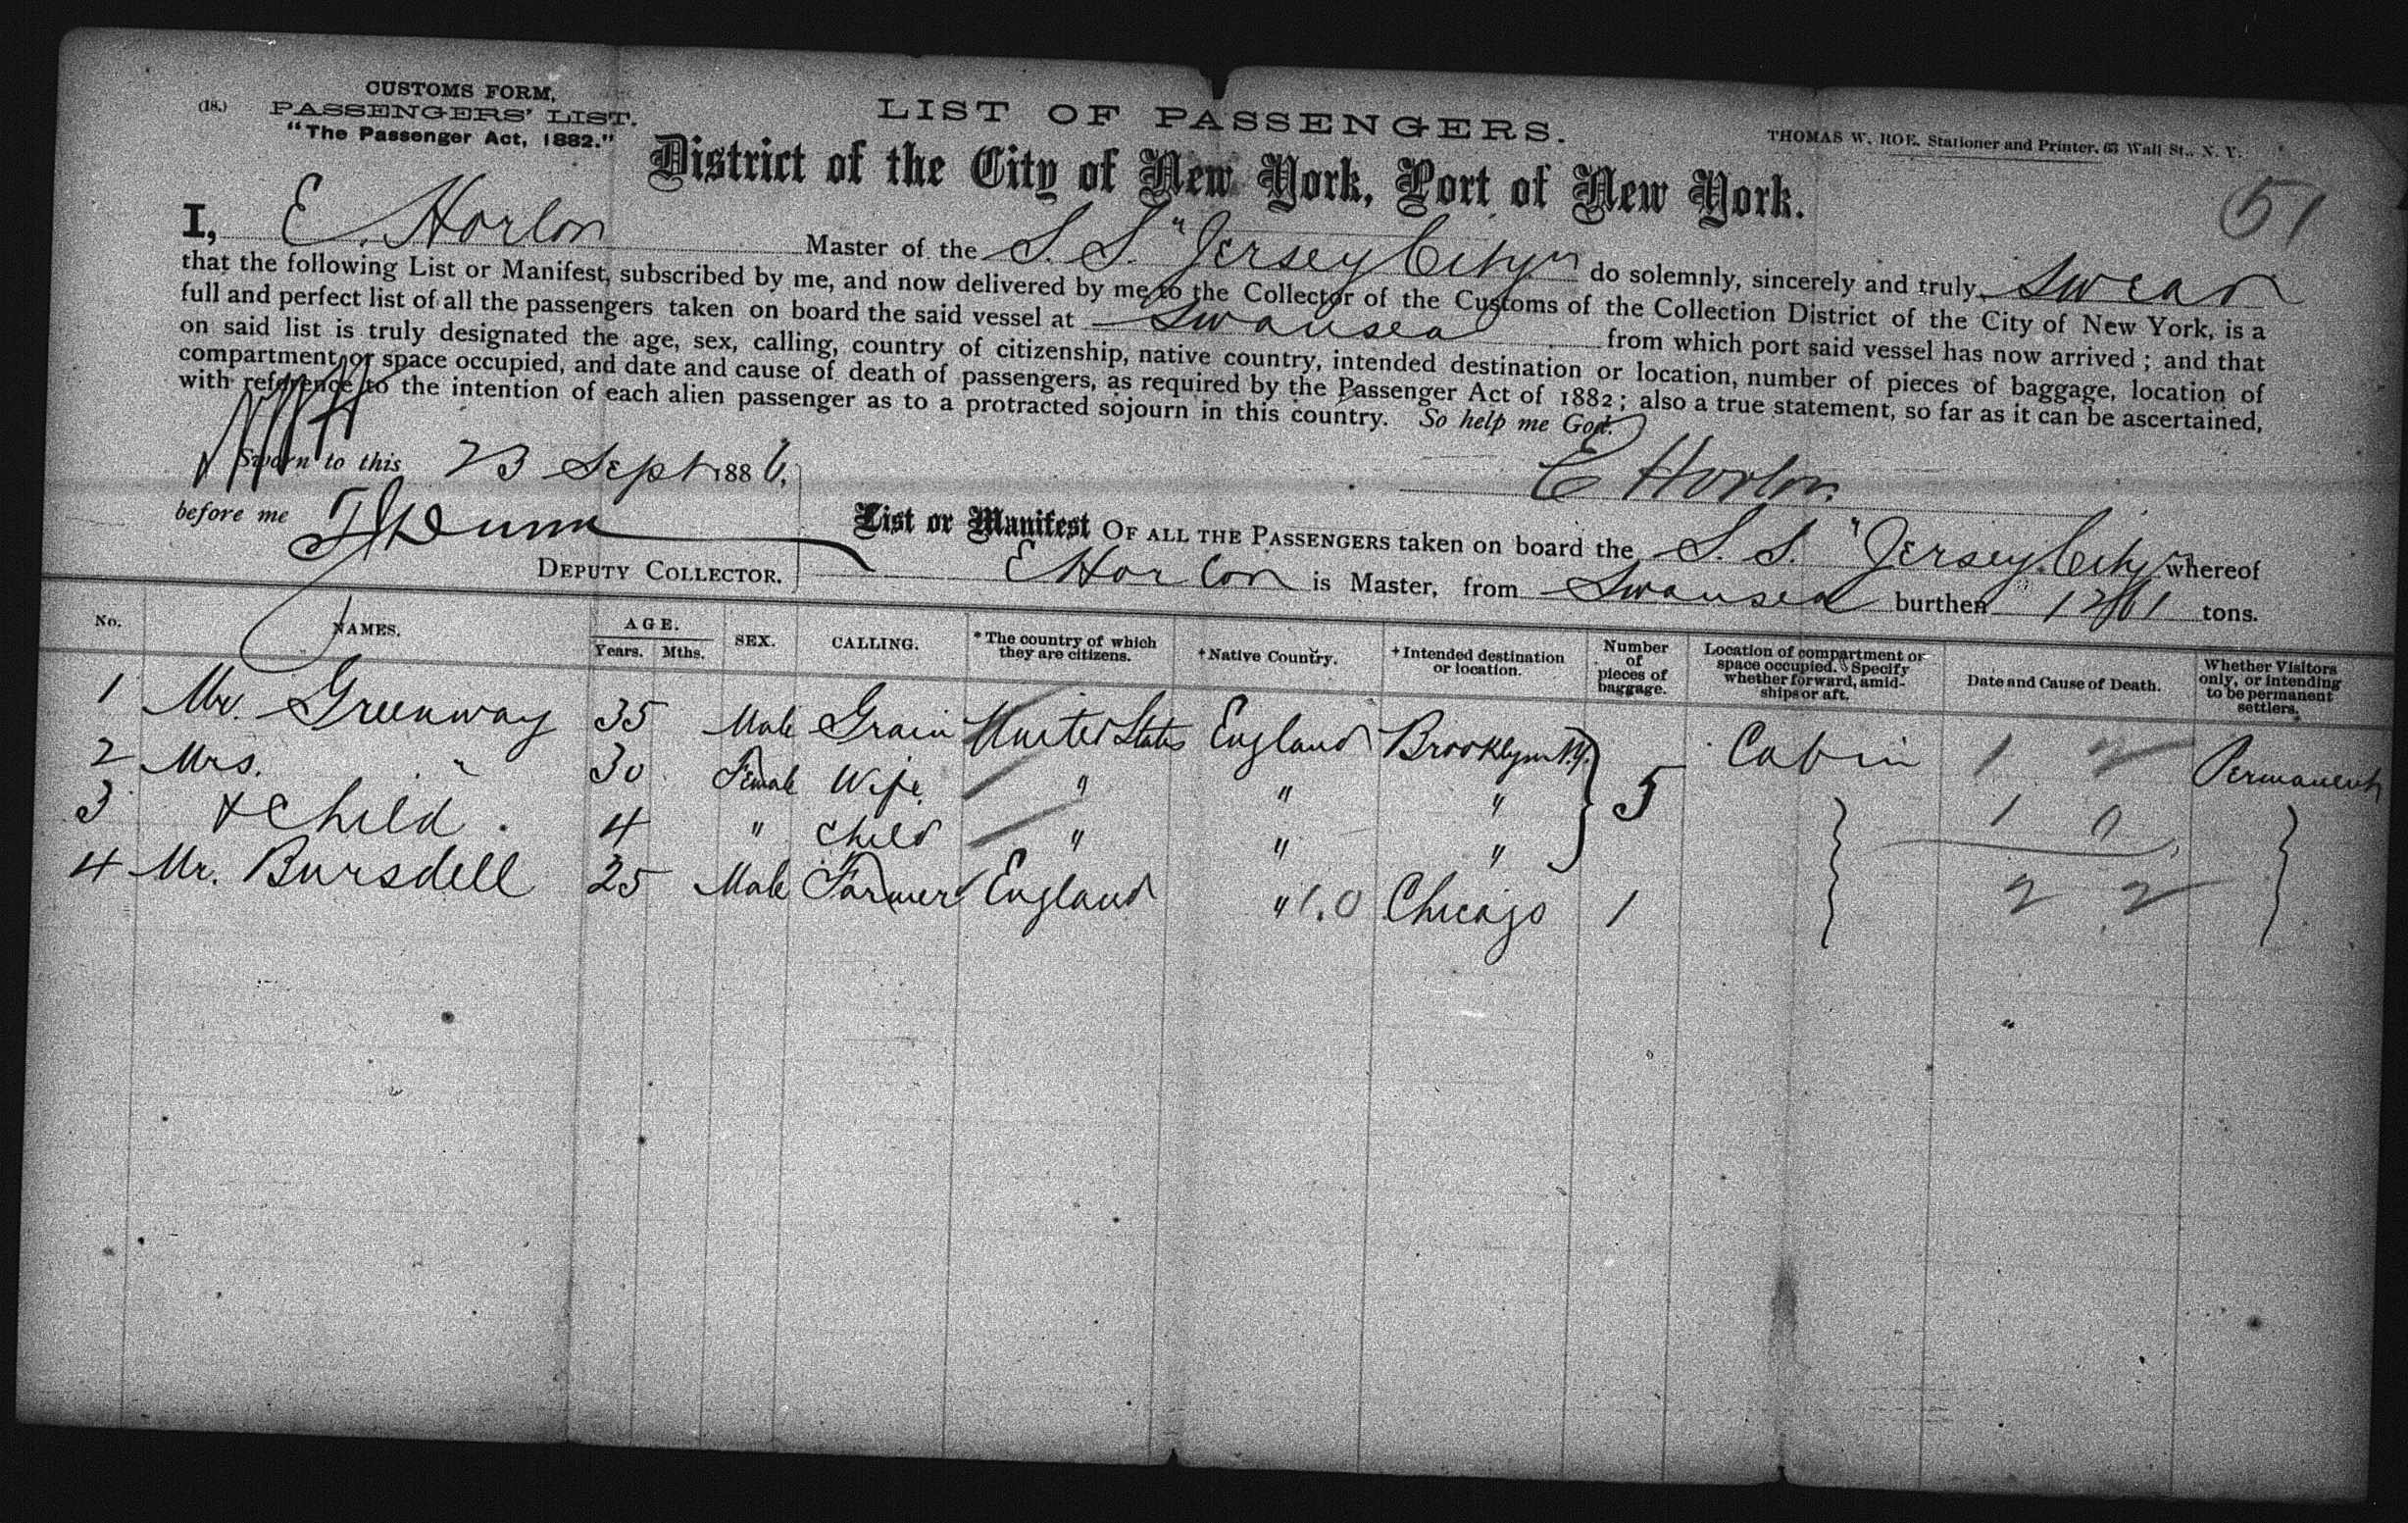 CUSTOMS FORM,
(18.) PASSENGERS' LIST.
"The Passenger Act, 1882."
LIST OF PASSENGERS.
THOMAS W. ROE, Stationer and Printer, 63 Wall St., N. Y.
District of the City of New York, Port of New York.
51
I, E. Horlor Master of the S.S. "Jersey City" do solemnly, sincerely and truly Swear
that the following List or Manifest, subscribed by me, and now delivered by me to the Collector of the Customs of the Collection District of the City of New York, is a
full and perfect list of all the passengers taken on board the said vessel at Swansea from which port said vessel has now arrived; and that
on said list is truly designated the age, sex, calling, country of citizenship, native country, intended destination or location, number of pieces of baggage, location of
compartment or space occupied, and date and cause of death of passengers, as required by the Passenger Act of 1882; also a true statement, so far as it can be ascertained,
with reference to the intention of each alien passenger as to a protracted sojourn in this country. So help me God.
Sworn to this 23 Sept 1886,
E Horlor
before me Dunn
DEPUTY COLLECTOR.
List or Manifest OF ALL THE PASSENGERS taken on board the S.S. "Jersey City" whereof
E Horlor is Master, from Swansea burthen tons.
No. NAMES. AGE. Years. Mths. SEX. CALLING. * The country of which they are citizens. + Native Country. + Intended destination or location. Number of pieces of baggage. Location of compartment or space occupied. Specify whether forward, amidships or aft. Date and Cause of Death. Whether Visitors only, or intending to be permanent settlers.
1 Mr. Greenway 35 Male Grain United States England Brooklyn N.Y. 5 Cabin 1 2 Permanent
2 Mrs. " 30 Female Wife " " "
3 & Child. 4 " Child " " " 1 0
4 Mr. Bursdell 25 Male Farmer England " 1.0 Chicago 1 2 2